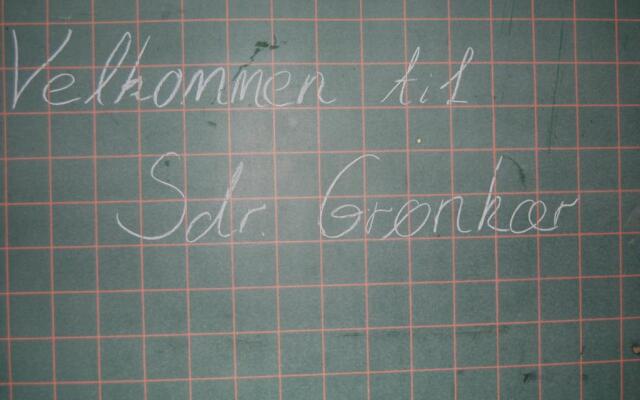 Velkommen til
Sdr. Grønkær